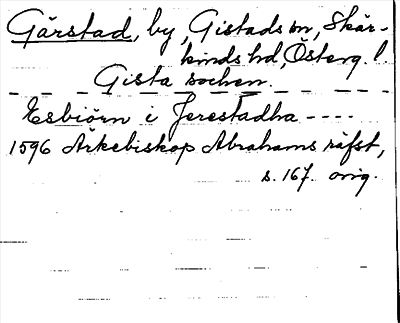 Gärstad, by, Gistads sn, Skär-
kinds hd, Österg. l.
Gista sochen.
Esbiörn i Jerestadha ----
1596 Ärkebiskop Abrahams räfst,
s. 167. orig.